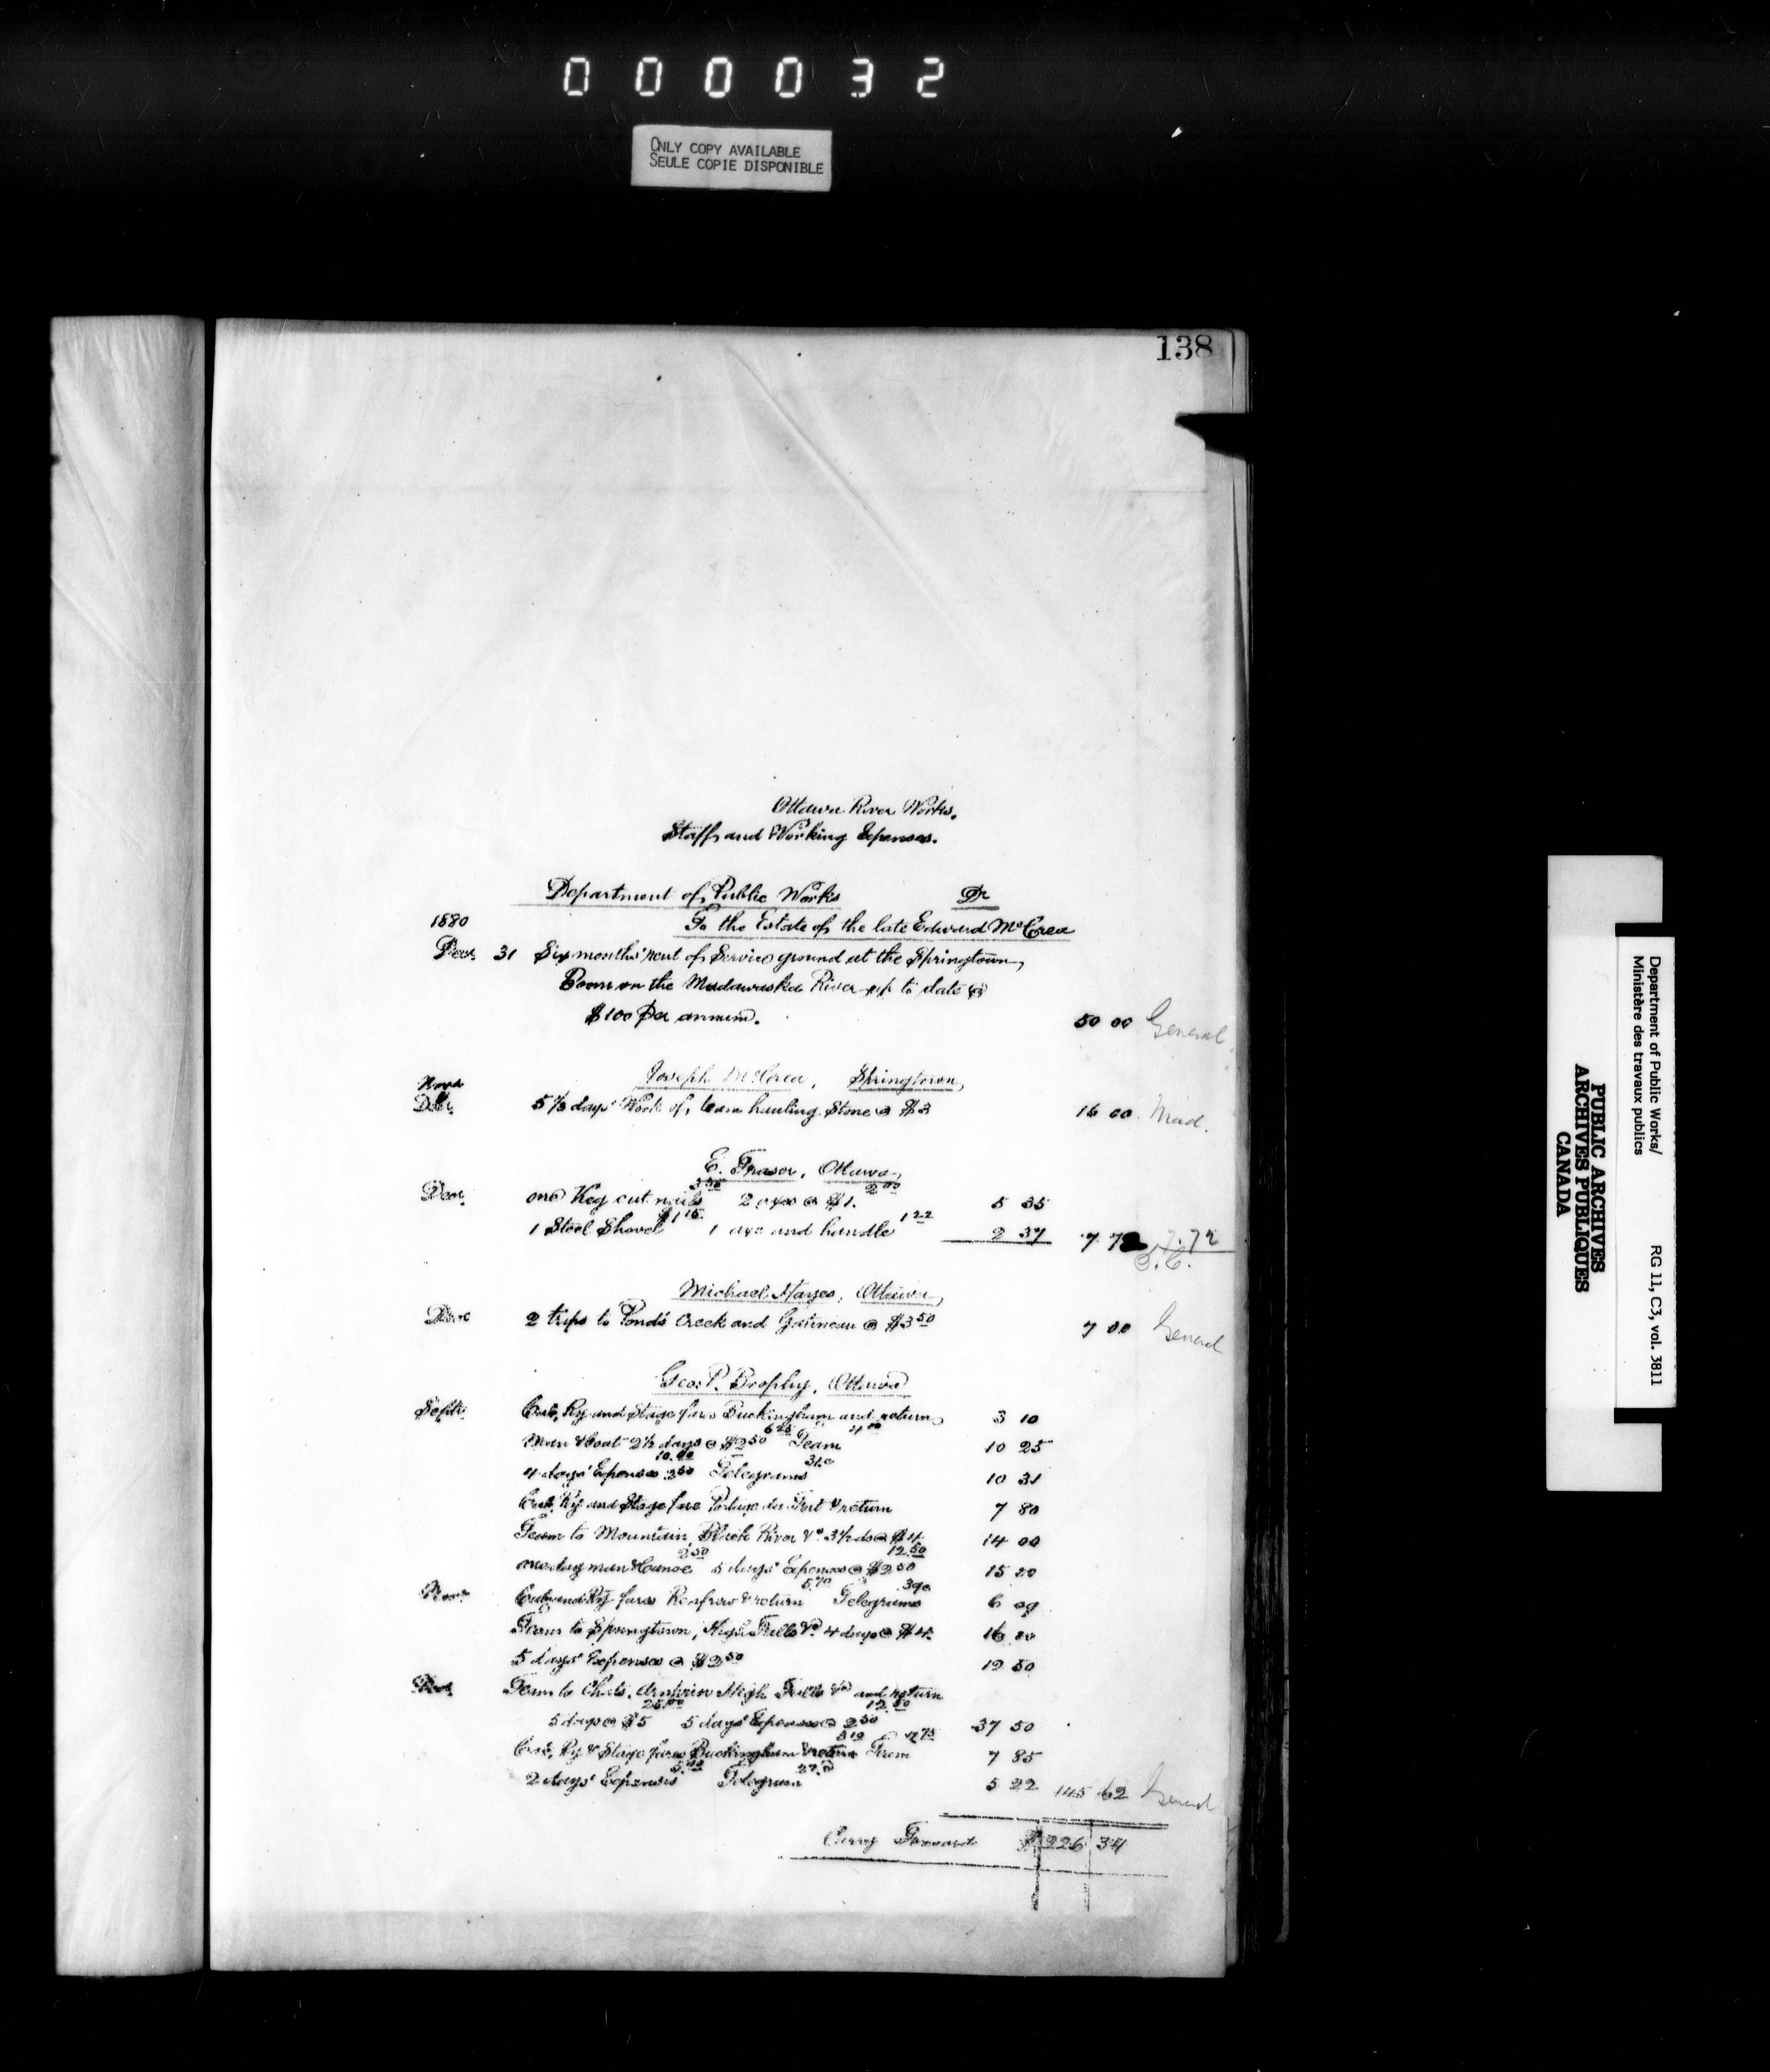 000032
ONLY COPY AVAILABLE
SEULE COPIE DISPONIBLE
138
Ottawa River Works.
Staff and Working Expenses.
Department of Public Works Dr
1880 To the Estate of the late Edward McCrea
Decr 31 Six months' rent of Service ground at the Springtown
Boom on the Madawaska River up to date @
$100 Per annum. 50 00 General
Joseph McCrea, Springtown
Novr
Decr 5 1/3 days' Work of team hauling Stone @ $3 16 00 Mad.
E. Fraser, Ottawa
3 35 2 00
Decr one Keg cut nails 2 axes @ $1. 5 35
$1 15 1 22
1 Steel Shovel 1 axe and handle 2 37 7 72 7.72
Michael Hayes, Ottawa
Decr 2 trips to Pond's Creek and Gatineau @ $3 50 7 00 General
Geo. P. Brophy, Ottawa
Septr Cab, Ry and Stage fares Buckingham and return 3 10
6 25 4 00
Man & boat 2 1/2 days @ $2 50 Team 10 25
10.00 31c
4 days' Expenses 2 50 Telegrams 10 31
Cab, Ry and Stage fare Portage du Fort & return 7 80
Team to Mountain, Black River &c 3 1/2 ds @ $4 14 00
2 50 12.50
one day man & Canoe 5 days' Expenses @ $2 50 15 00
5.70 39c
Novr Cab and Ry fares Renfrew & return Telegrams 6 09
Team to Springtown, High Falls &c 4 days @ $4 16 00
5 days' Expenses @ $2 50 12 50
Decr Team to Chats, Arnprior High Falls &c and return
25.00 12.50
5 days @ $5 5 days' Expenses @ 2 50 37 50
3 10 4 75
Cab, Ry & Stage fares Buckingham & return Team 7 85
5.00 22c
2 days' Expenses Telegram 5 22 145 62 General
Carry Forward $ 226 34
Department of Public Works/
Ministère des travaux publics
RG 11, C3, vol. 3811
PUBLIC ARCHIVES
ARCHIVES PUBLIQUES
CANADA